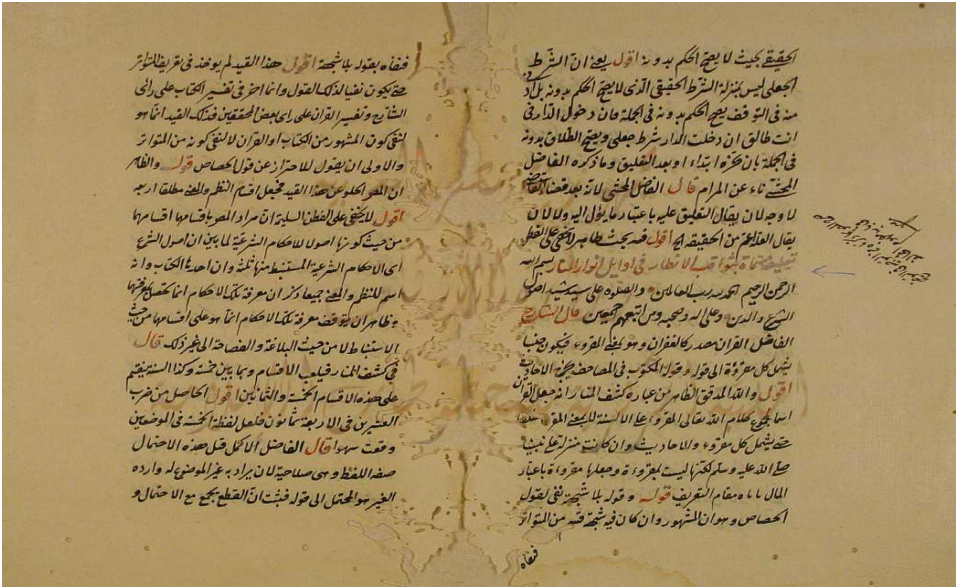 الحقيقي بحيث لا يصح الحكم بدونه اقول يعني ان الشرط
الجعلي ليس بمنزلة الشرط الحقيقي الذي لا يصح الحكم بدونه بل ادنى
منه في التوقف يصح الحكم بدونه في الجملة فان دخول الدار في
انت طالق ان دخلت الدار شرط جعلي ويصح الطلاق بدونه
في الجملة بان نجزه ابتداء او بعد التعليق وما ذكره الفاضل
المحشي ناء عن المرام قال الفاضل المحشي لانه بعد قضاء القاضي
لا وجه لان يقال التعليق عليه باعتبار ما يؤل اليه ولا لان
يقال الحقيقة الخ اقول فيه بحث ظاهر لا يخفى على الفطن
تعليقة ثواقب الانظار في اوايل انوار المنار بسم الله
الرحمن الرحيم الحمد لله رب العالمين والصلوة على سيد
الشرع والدين وعلى اله وصحبه ومن اتبعهم اجمعين قال الشارح
الفاضل القران مصدر كالغفران وهو بمعنى المقروء فيكون جنسا
يشمل كل مقروءة الى قوله وقوله المكتوب في المصاحف يخرج الاحاديث
اقول والله الموفق الظاهر من عبارة كشف المنار انه جعل القران
اسما لمجموع كلام الله تعالى المقروء على الالسنة لا بمعنى المقروء
حتى يشمل كل مقروء والاحاديث وان كانت منزلة على نبينا
صلى الله عليه وسلم لكنها ليست بمقروءة وجعلها مقروءة باعتبار
المال ياباه مقام التعريف قوله وقوله بلا شبهة نفي لقول
الجصاص وهو ان المشهور وان كان فيه شبهة قسم من المتواتر
فنفاه
فنفاه بقوله بلا شبهة اقول هذا القيد لم يوخذ في تعريف المتواتر
حتى يكون نفيا لذلك القول وانما اخذ في تفسير الكتاب على راى
الشارح وتفسير القران على راى بعض المحققين فذلك القيد انما هو
لنفي كون المشهور من الكتاب او القران لا لنفي كونه من المتواتر
والاولى ان يقول للاحتراز عن قول الجصاص قوله والظاهر
ان المص اخلو عن هذا القيد فجعل اقسام النظم والمعنى مطلقا اربعة
اقول لا يخفى على الفطن السليم ان مراد المص باقسامها اقسامها
من حيث كونها اصولا للاحكام الشرعية لما بين ان اصول الشرع
اى الاحكام الشرعية المستنبط منها ثلثة وان احدها الكتاب وانه
اسم للنظم والمعنى جميعا وذكر ان معرفة تلك الاحكام انما تحصل بمعرفتها
وظاهر ان توقف معرفة تلك الاحكام انما هو على اقسامها من حيث
الاستنباط لا من حيث البلاغة والفصاحة الى غير ذلك قال
في كشف المنار فيبلغ الاقسام وبما بين خمسة وكذا السنة ينقسم
على هذه الاقسام الخمسة والثمانين اقول الحاصل من ضرب
العشرين في الاربعة ثمانون فلعل لفظة الخمسة في الموضعين
وقعت سهوا قال الفاضل الاكمل قيل هذه الاحتمال
صفة اللفظ وهى صلاحيته لان يراد به غير الموضوع له وارادة
الغير هو المحتمل الى قوله فثبت ان القطع يجمع مع الاحتمال و